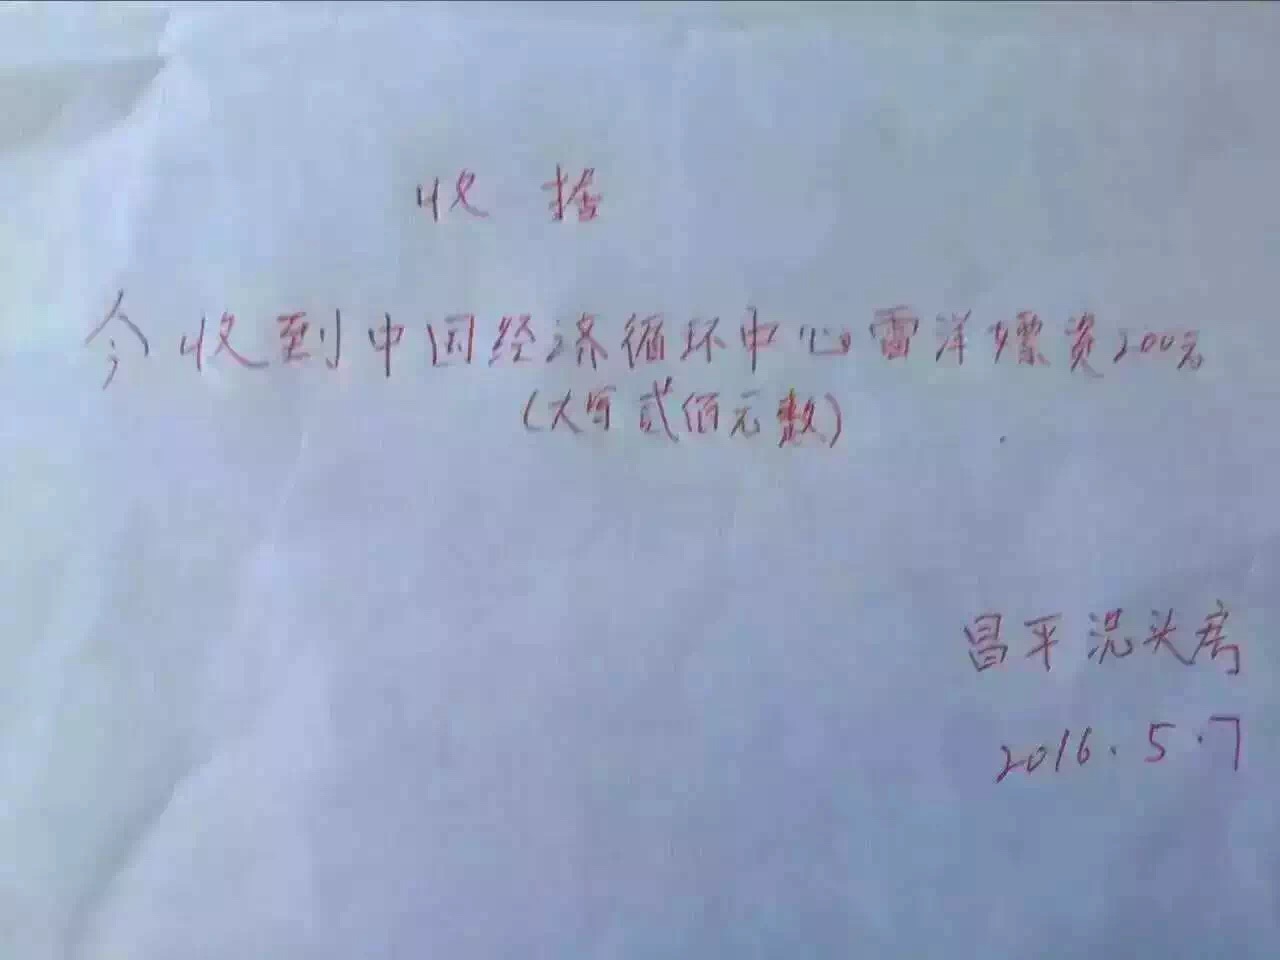 收 据
今收到中国经济循环中心雷洋嫖资200元
(大写贰佰元整)
昌平洗头房
2016.5.7